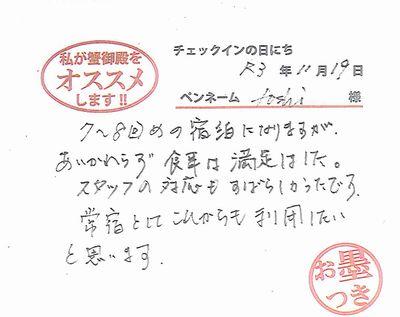 私が蟹御殿を
オススメ
します!!
チェックインの日にち
R3 年 11 月 19 日
ペンネーム toshi 様
7〜8回めの宿泊になりますが、
あいかわらず食事は満足でした。
スタッフの対応もすばらしかったです。
常宿としてこれからも利用したい
と思います。
お墨
つき